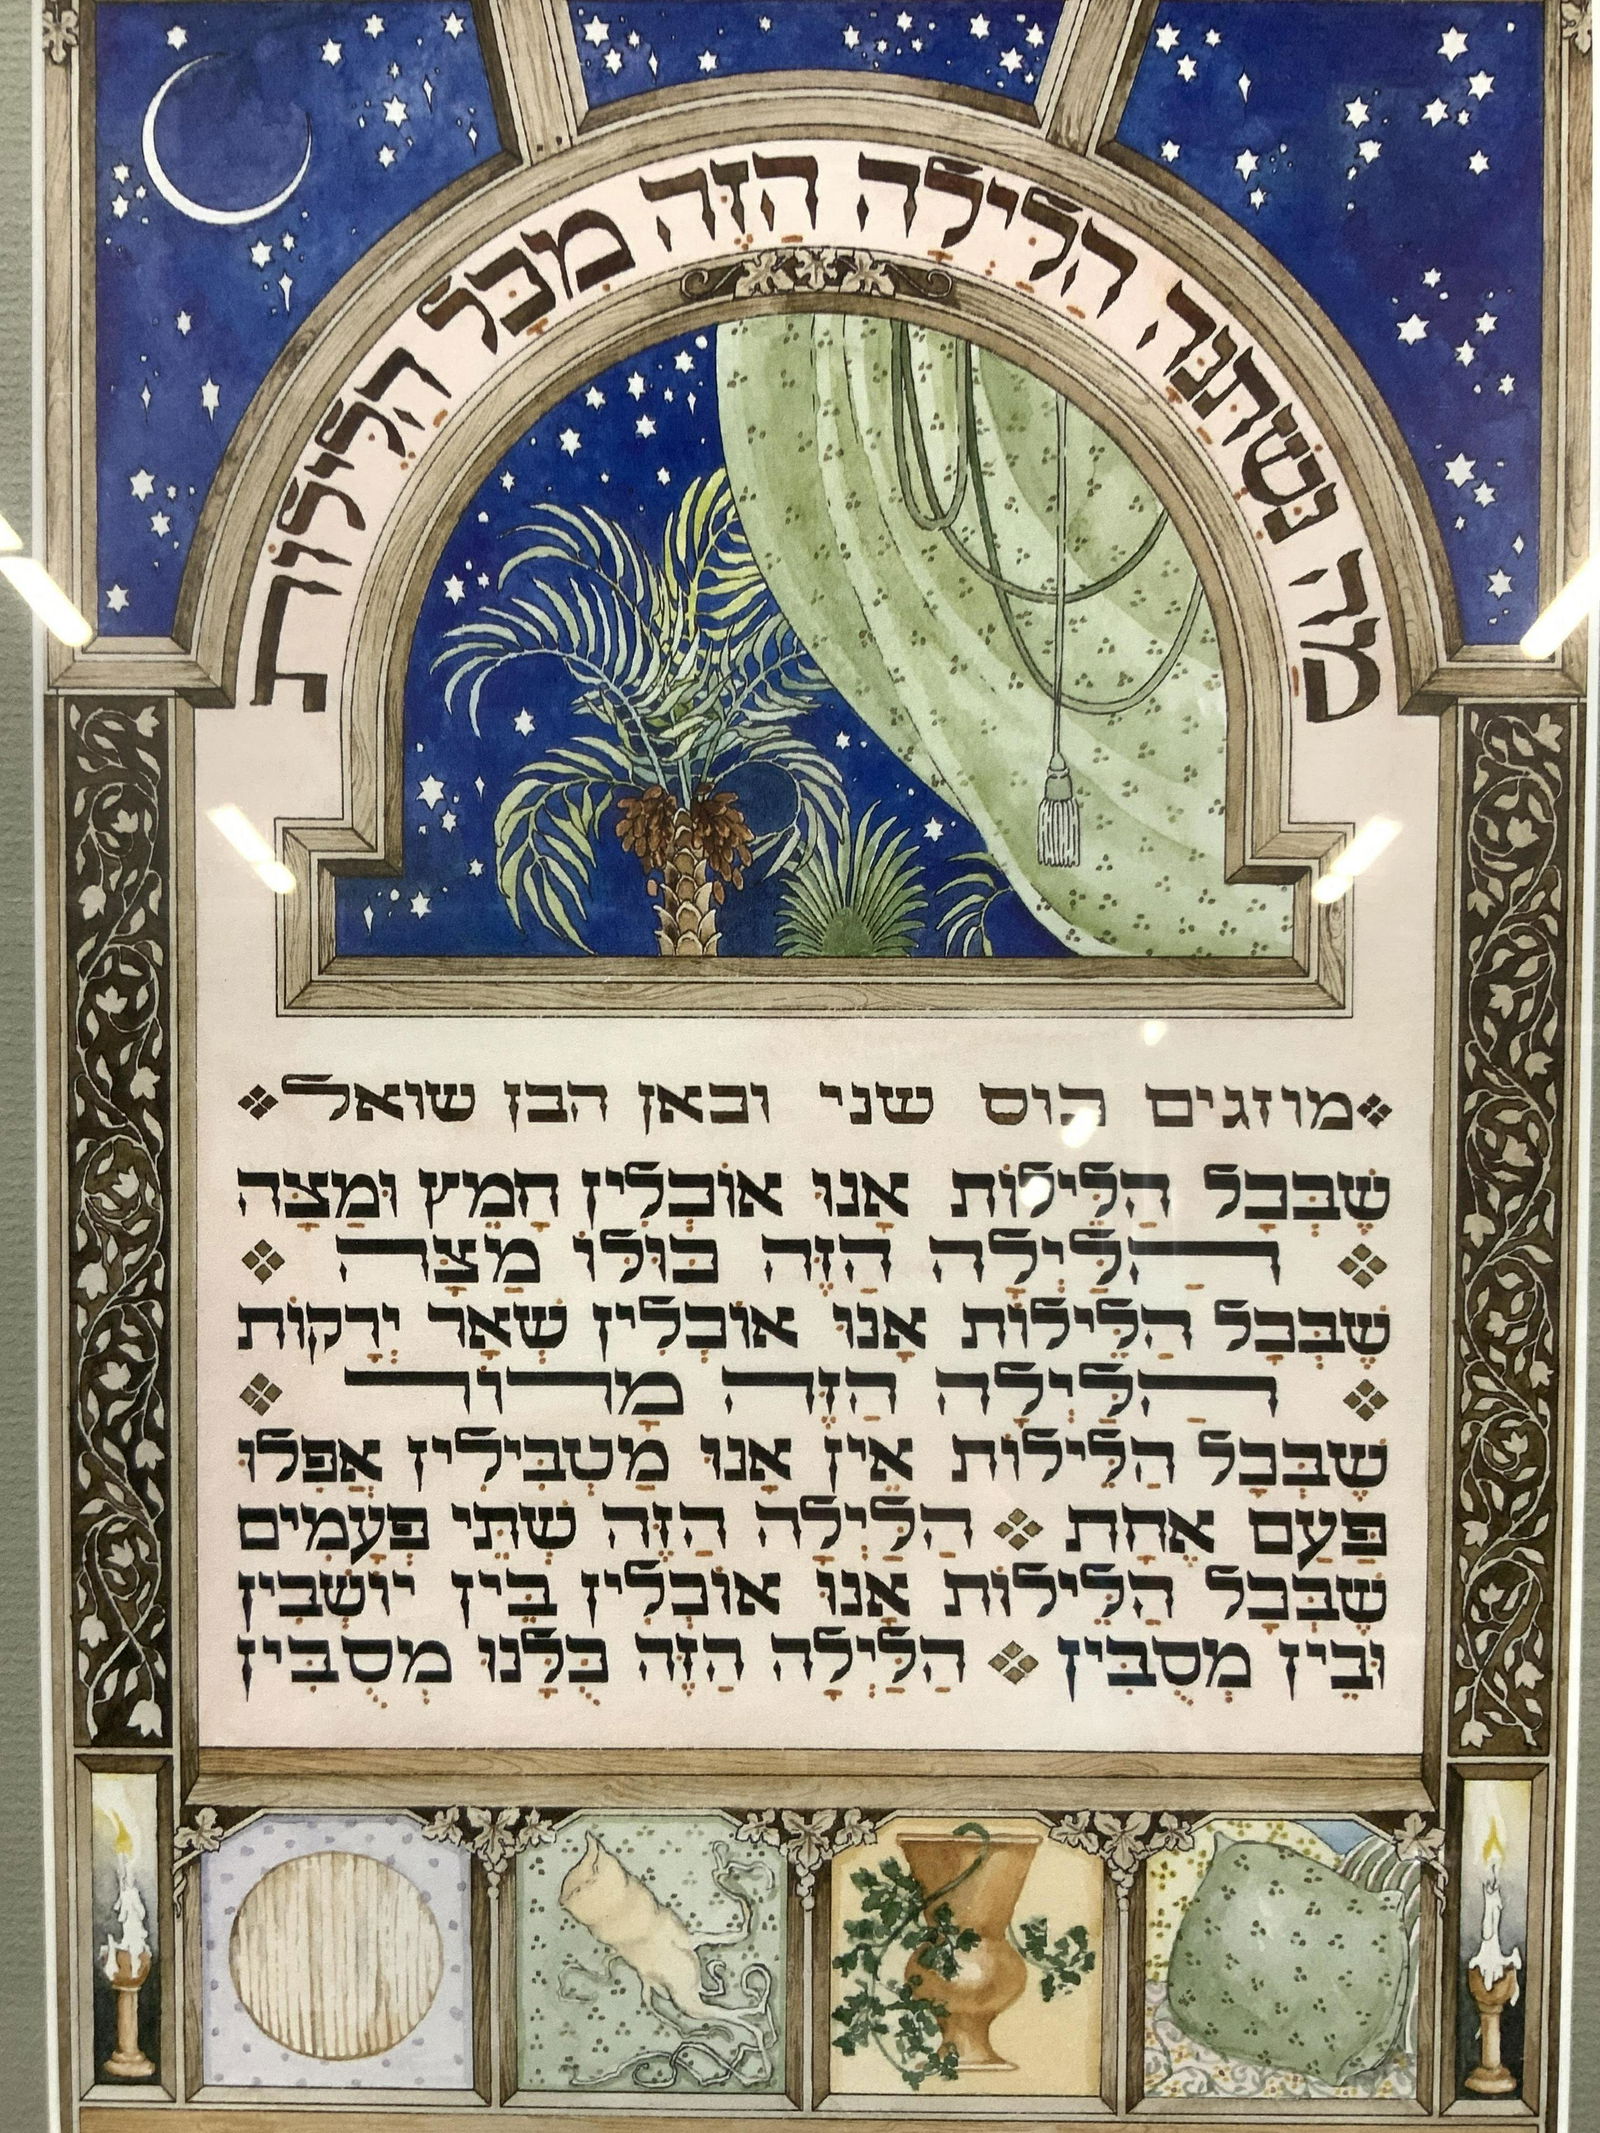 מַה נִּשְׁתַּנָּה הַלַּיְלָה הַזֶּה מִכָּל הַלֵּילוֹת
מוזגים כוס שני וכאן הבן שואל
שֶׁבְּכָל הַלֵּילוֹת אָנוּ אוֹכְלִין חָמֵץ וּמַצָּה
הַלַּיְלָה הַזֶּה כּוּלּוֹ מַצָּה
שֶׁבְּכָל הַלֵּילוֹת אָנוּ אוֹכְלִין שְׁאָר יְרָקוֹת
הַלַּיְלָה הַזֶּה מָרוֹר
שֶׁבְּכָל הַלֵּילוֹת אֵין אָנוּ מַטְבִּילִין אֲפִלּוּ
פַּעַם אֶחָת הַלַּיְלָה הַזֶּה שְׁתֵּי פְּעָמִים
שֶׁבְּכָל הַלֵּילוֹת אָנוּ אוֹכְלִין בֵּין יוֹשְׁבִין
וּבֵין מְסֻבִּין הַלַּיְלָה הַזֶּה כֻּלָּנוּ מְסֻבִּין